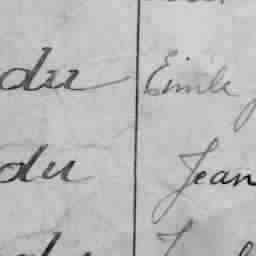 du Emile
du Jean